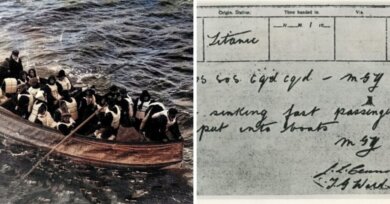 Origin. Station.
Time handed in
Via.
Titanic
sos sos cqd cqd - MGY
sinking fast passengers
put into boats
MGY